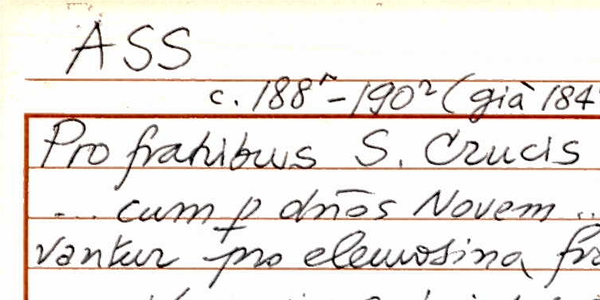 ASS
c. 188r-190r (già 184
Pro fratribus S. Crucis
... cum p dn̄os Novem ..
vantur pro elemosina fr